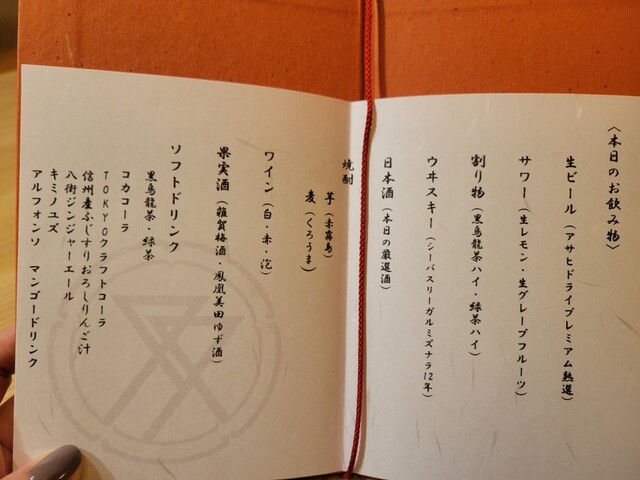 〈本日のお飲み物〉
生ビール（アサヒドライプレミアム熟選）
サワー（生レモン・生グレープフルーツ）
割り物（黒烏龍茶ハイ・緑茶ハイ）
ウヰスキー（シーバスリーガルミズナラ12年）
日本酒（本日の厳選酒）
焼酎
芋（赤霧島）
麦（くろうま）
ワイン（白・赤・泡）
果実酒（雑賀梅酒・鳳凰美田ゆず酒）
ソフトドリンク
黒烏龍茶・緑茶
コカコーラ
TOKYOクラフトコーラ
信州産ふじすりおろしりんご汁
八街ジンジャーエール
キミノユズ
アルフォンソ マンゴードリンク